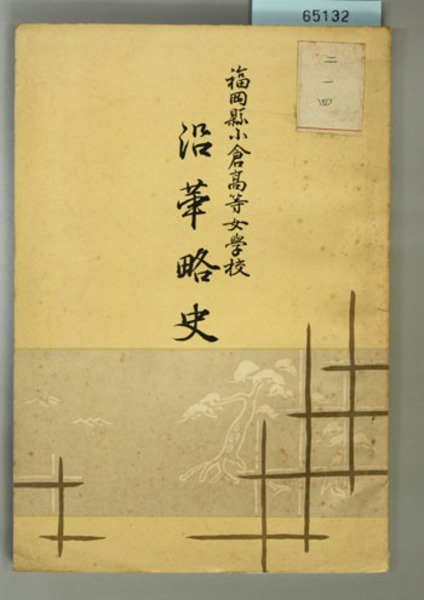 65132
二一四
福岡縣小倉高等女學校
沿革略史